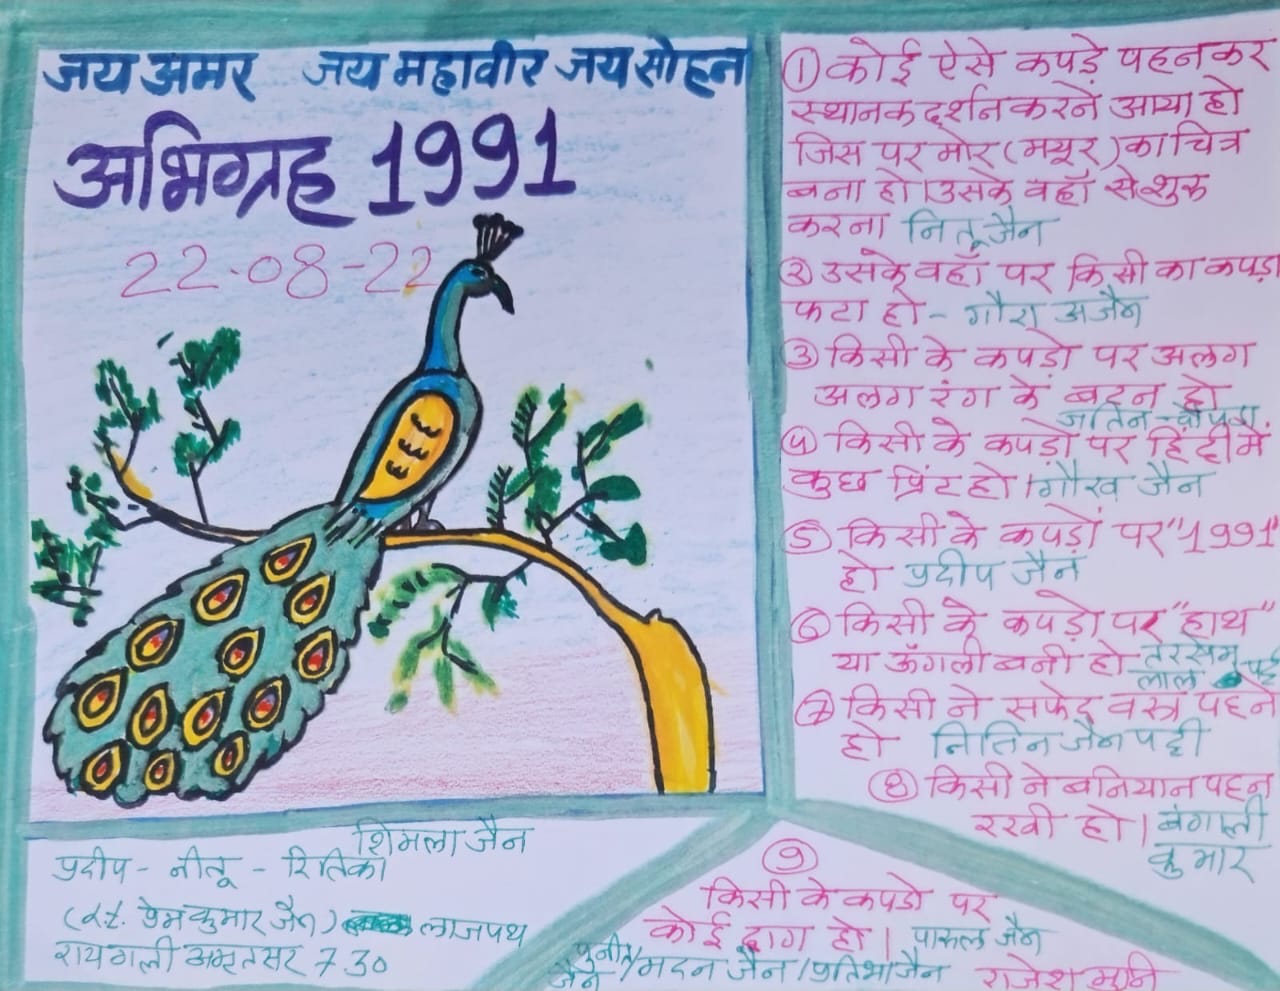 जय अमर जय महावीर जय सोहन
अभिग्रह 1991
22-08-22
① कोई ऐसे कपड़े पहनकर
स्थानक दर्शन करने आया हो
जिस पर मोर (मयूर) का चित्र
बना हो। उसके वहाँ से शुरू
करना नितू जैन
② उसके वहाँ पर किसी का कपड़ा
फटा हो - गौरा अजैन
③ किसी के कपड़ो पर अलग
अलग रंग के बटन हो
जतिन - चोपड़ा
④ किसी के कपड़ो पर हिंदी में
कुछ प्रिंट हो। गौरव जैन
⑤ किसी के कपड़ों पर "1991"
हो प्रदीप जैन
⑥ किसी के कपड़ो पर "हाथ"
या ऊँगली बनी हो तरसेम
लाल
⑦ किसी ने सफेद वस्त्र पहने
हो नितिन जैन पट्टी
⑧ किसी ने बनियान पहन
रखी हो। बंगाली
कुमार
⑨
किसी के कपडो पर
कोई दाग हो। पारुल जैन
पुनीत जैन / मदन जैन / प्रतिभा जैन
राजेश मुनि
शिमला जैन
प्रदीप - नीतू - रितिका
प्रेमकुमार जैन) लाजपथ
राय गली अमृतसर 7 30